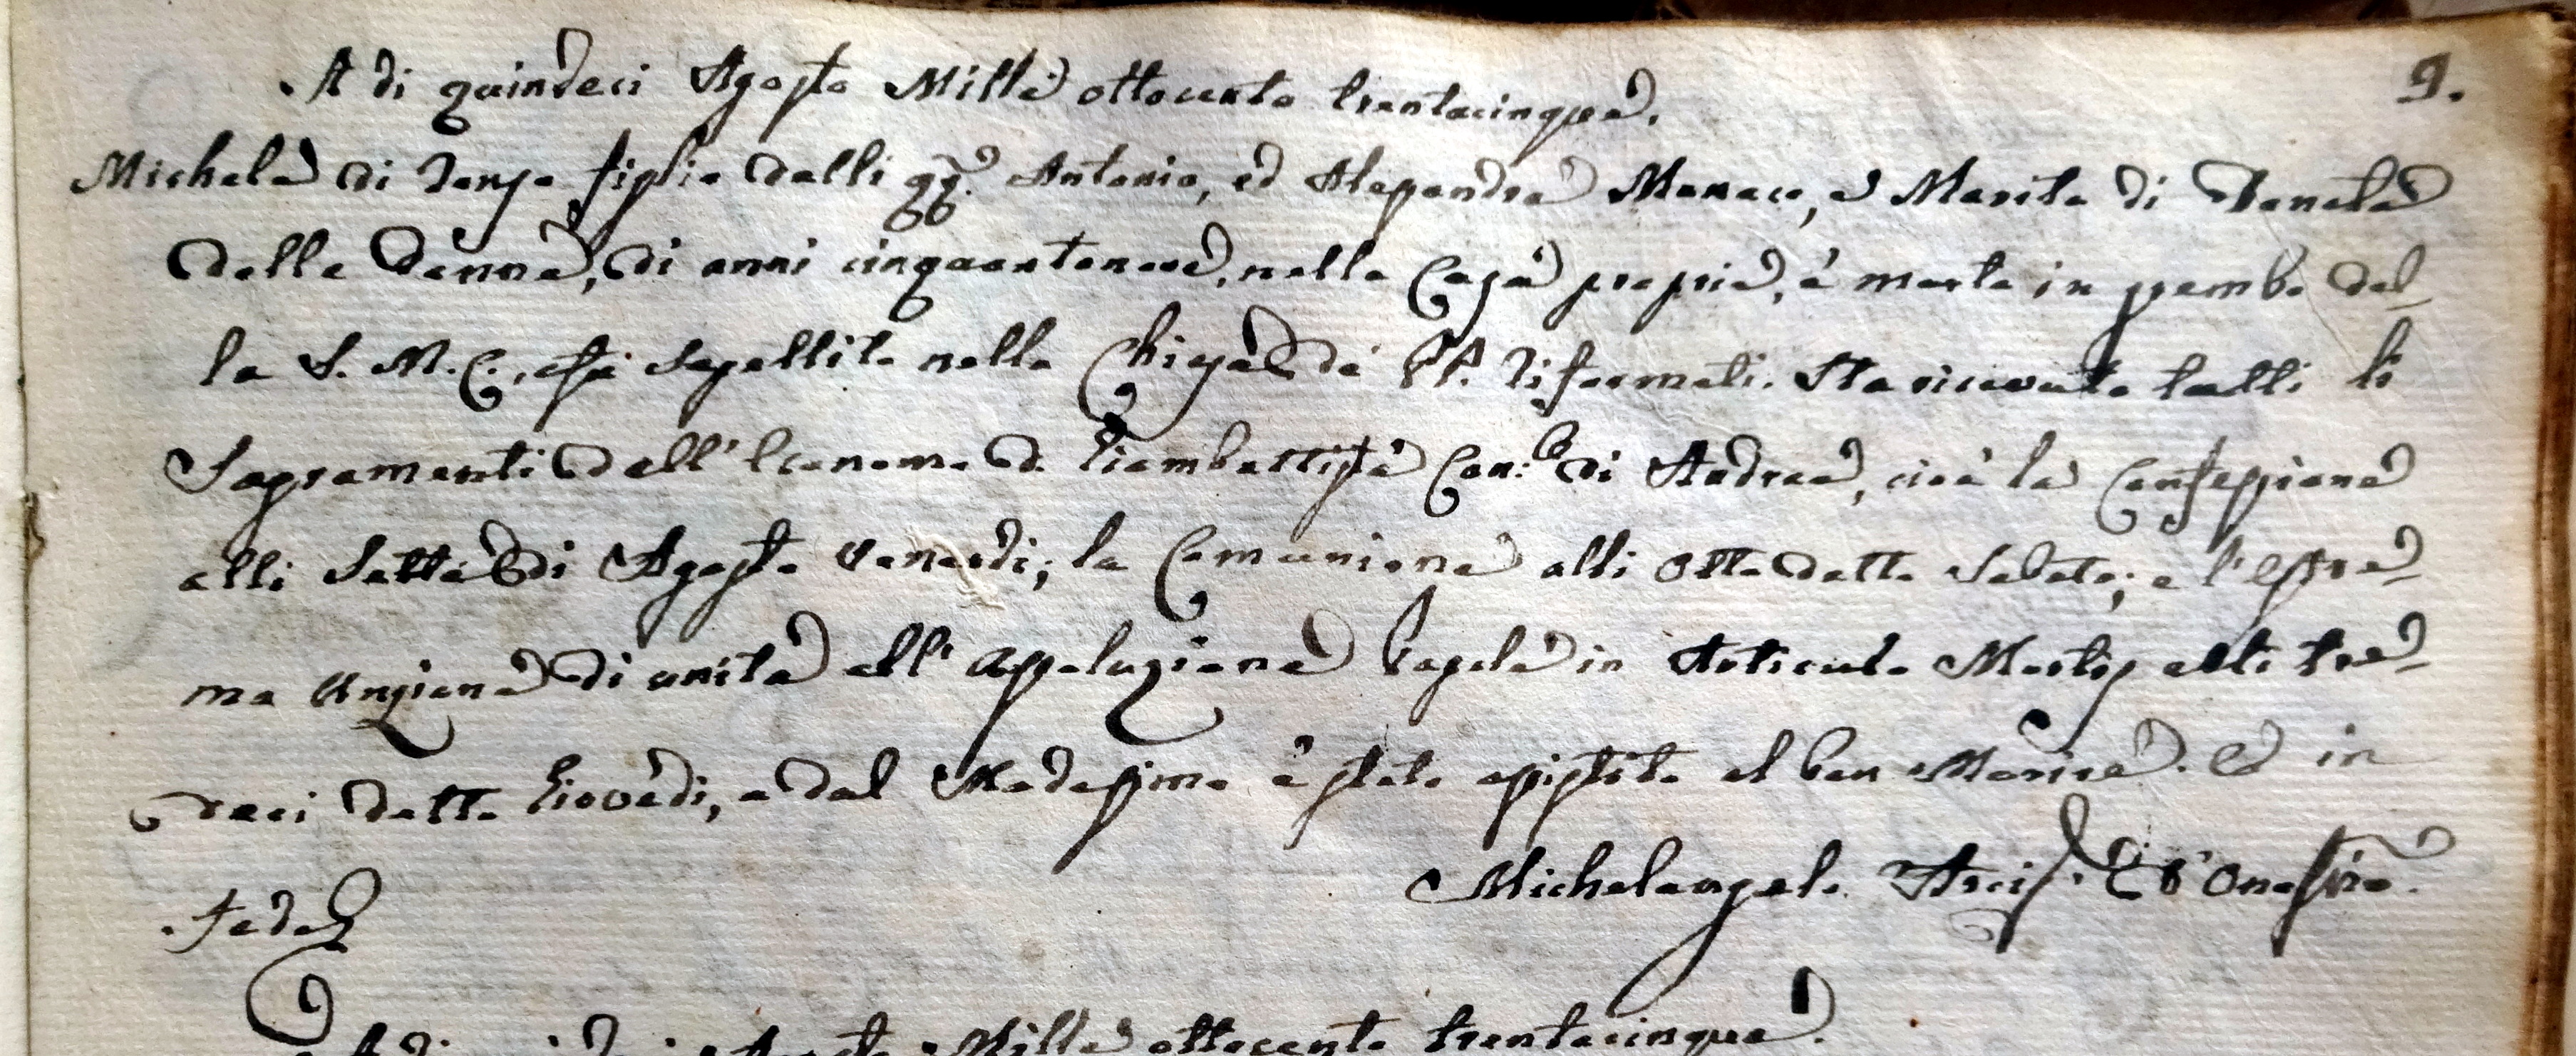 A di quindeci Agosto Mille ottocento trentacinque.
9.
Michele di figlio delli qq. Antonio, ed Alessandra Monaco, e Marito di Donata
delle Donne, di anni cinquantanove, nella Casa propria, è morto in grembo del-
la S. M. C., e fù sepellito nella Chiesa de' PP. Riformati. Ha ricevuto tutti li
Sagramenti dall'Economo D. Giambattista Can.co di Andrea, cioè la Confessione
alli Sette di Agosto Venerdi; la Comunione alli Otto detto Sabato; e l'Estre-
ma Unzione di unita all'Assoluzione Papale in Articulo Mortis alli tre-
deci detto Giovedi, e dal Medesimo è stato assistito al ben Morire. Ed in
Fede
Michelangelo Arcip. D'Onofrio.
Agosto Mille ottocento trentacinque.